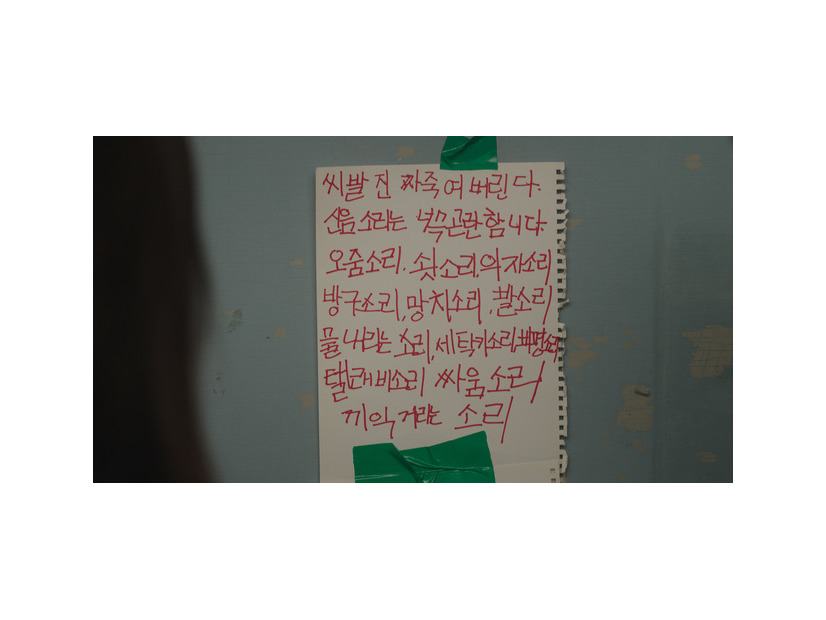 씨발 진짜 죽여버린다.
신음소리는 녹음곤란합니다.
오줌소리. 쇳소리. 의자소리
방구소리, 망치소리. 발소리
물 나리는 소리, 세탁기소리, 비명소리
텔레비소리 싸움소리
끼익 거리는 소리